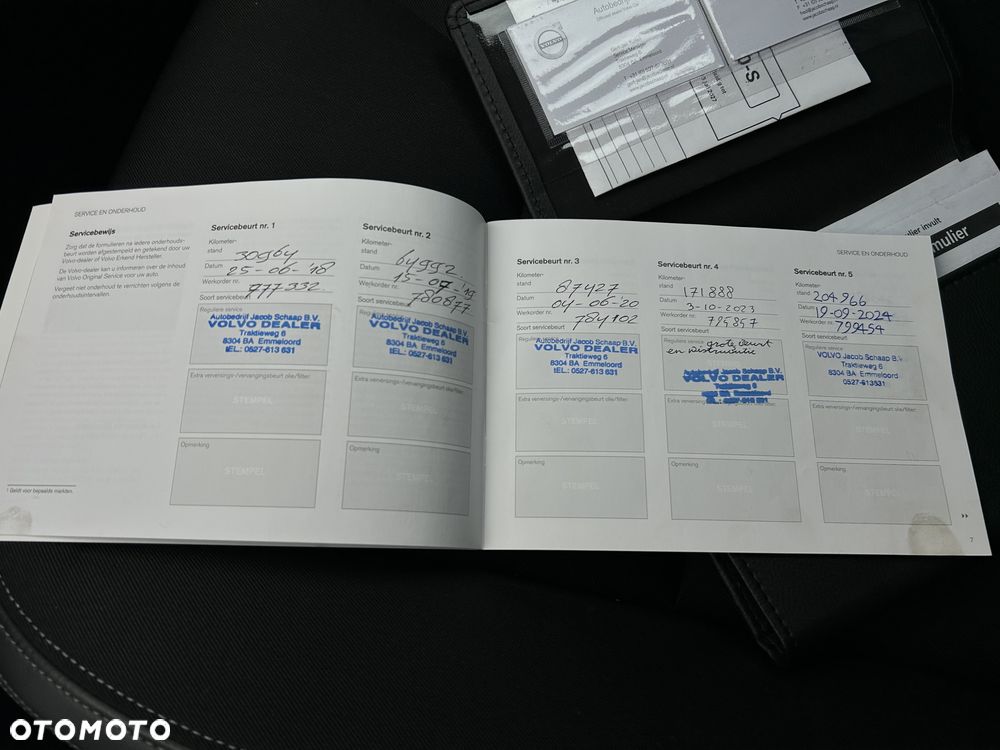 Autobedrijf
VOLVO
Service Manager
8304 BA Emmeloord
SERVICE EN ONDERHOUD
Servicebewijs
Zorg dat de formulieren na iedere onderhouds-
beurt worden afgestempeld en getekend door uw
Volvo-dealer of Volvo Erkend Hersteller.
De Volvo-dealer kan u informeren over de inhoud
van Volvo Original Service voor uw auto.
Vergeet niet onderhoud te verrichten volgens de
onderhoudsintervallen.
1 Geldt voor bepaalde markten.
Servicebeurt nr. 1
Kilometer-
stand
30964
Datum
25-06-'18
Werkorder nr.
777332
Soort servicebeurt
Reguliere service
Autobedrijf Jacob Schaap B.V.
VOLVO DEALER
Traktieweg 6
8304 BA Emmeloord
tEL.: 0527-613 631
Extra verversings-/vervangingsbeurt olie/filter:
STEMPEL
Opmerking
STEMPEL
Servicebeurt nr. 2
Kilometer-
stand
64992
Datum
15-07-'19
Werkorder nr.
780877
Soort servicebeurt
Reguliere service
Autobedrijf Jacob Schaap B.V.
VOLVO DEALER
Traktieweg 6
8304 BA Emmeloord
tEL.: 0527-613 631
Extra verversings-/vervangingsbeurt olie/filter:
STEMPEL
Opmerking
STEMPEL
SERVICE EN ONDERHOUD
Servicebeurt nr. 3
Kilometer-
stand
87427
Datum
04-06-20
Werkorder nr.
784102
Soort servicebeurt
Autobedrijf Jacob Schaap B.V.
VOLVO DEALER
Traktieweg 6
8304 BA Emmeloord
tEL.: 0527-613 631
Extra verversings-/vervangingsbeurt olie/filter:
STEMPEL
Opmerking
STEMPEL
Servicebeurt nr. 4
Kilometer-
stand
171888
Datum
3-10-2023
Werkorder nr.
795857
Soort servicebeurt
Reguliere service
grote beurt
en distributie
Autobedrijf Jacob Schaap B.V.
VOLVO DEALER
Traktieweg 6
8304 BA Emmeloord
STEMPEL
Opmerking
STEMPEL
Servicebeurt nr. 5
Kilometer-
stand
204966
Datum
19-09-2024
Werkorder nr.
799454
Soort servicebeurt
Reguliere service
VOLVO Jacob Schaap B.V.
Traktieweg 6
8304 BA Emmeloord
0527-613531
Extra verversings-/vervangingsbeurt olie/filter:
STEMPEL
Opmerking
STEMPEL
7
OTOMOTO